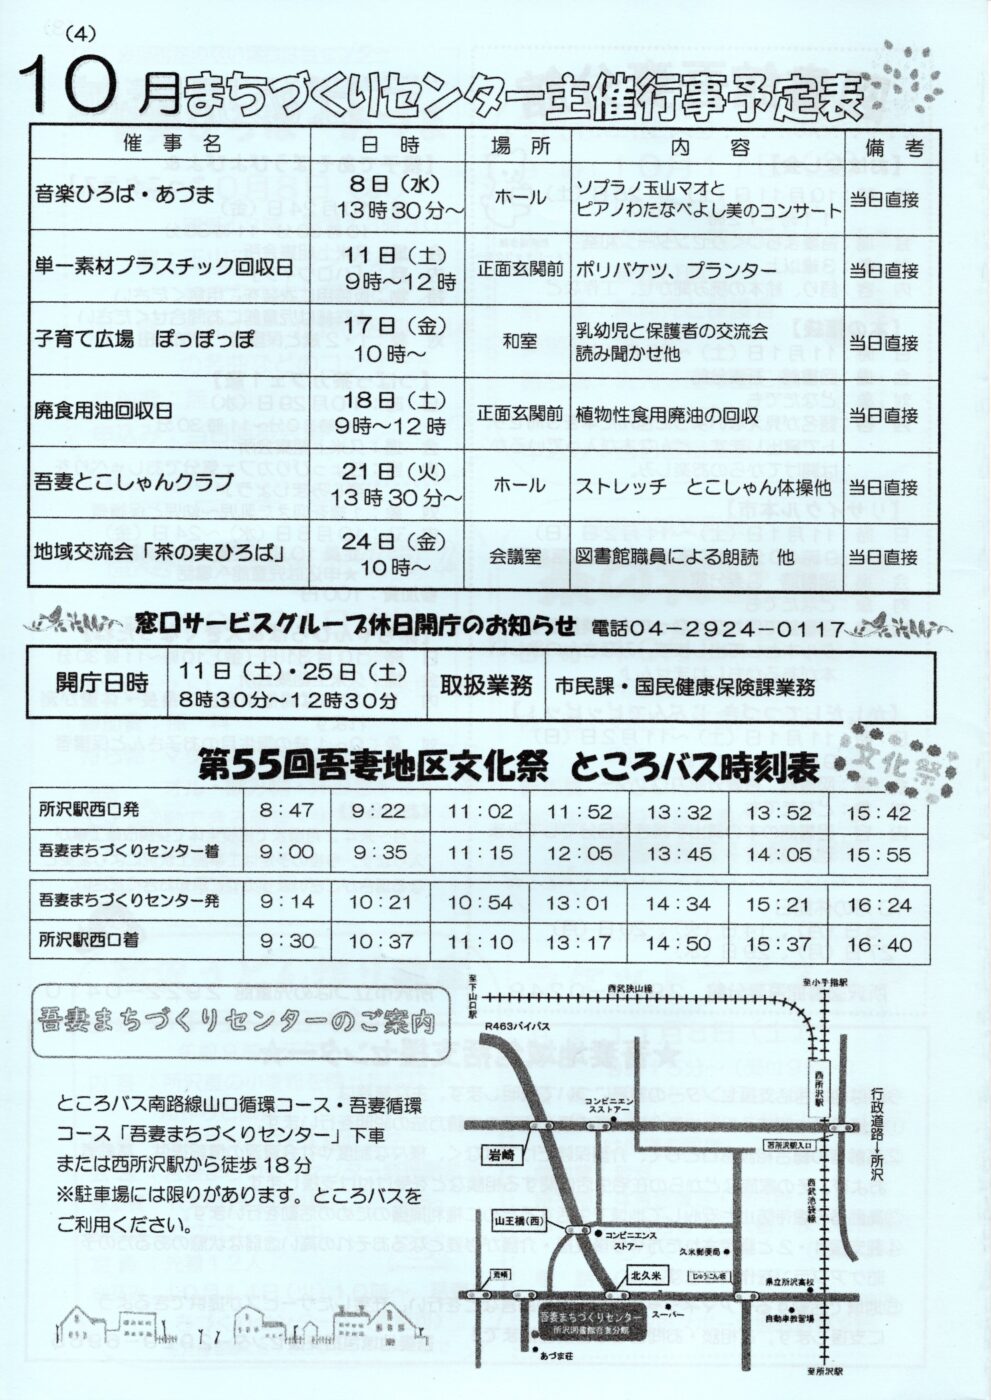 (4)
10月まちづくりセンター主催行事予定表
催事名 日時 場所 内容 備考
音楽ひろば・あづま 8日(水) 13時30分～ ホール ソプラノ玉山マオと ピアノわたなべよし美のコンサート 当日直接
単一素材プラスチック回収日 11日(土) 9時～12時 正面玄関前 ポリバケツ、プランター 当日直接
子育て広場 ぽっぽっぽ 17日(金) 10時～ 和室 乳幼児と保護者の交流会 読み聞かせ他 当日直接
廃食用油回収日 18日(土) 9時～12時 正面玄関前 植物性食用廃油の回収 当日直接
吾妻とこしゃんクラブ 21日(火) 13時30分～ ホール ストレッチ とこしゃん体操他 当日直接
地域交流会「茶の実ひろば」 24日(金) 10時～ 会議室 図書館職員による朗読 他 当日直接
窓口サービスグループ休日開庁のお知らせ 電話04-2924-0117
開庁日時 11日(土)・25日(土) 8時30分～12時30分 取扱業務 市民課・国民健康保険課業務
第55回吾妻地区文化祭 ところバス時刻表
文化祭
所沢駅西口発 8:47 9:22 11:02 11:52 13:32 13:52 15:42
吾妻まちづくりセンター着 9:00 9:35 11:15 12:05 13:45 14:05 15:55
吾妻まちづくりセンター発 9:14 10:21 10:54 13:01 14:34 15:21 16:24
所沢駅西口着 9:30 10:37 11:10 13:17 14:50 15:37 16:40
吾妻まちづくりセンターのご案内
ところバス南路線山口循環コース・吾妻循環
コース「吾妻まちづくりセンター」下車
または西所沢駅から徒歩18分
※駐車場には限りがあります。ところバスを
ご利用ください。
至下山口駅
西武狭山線
至小手指駅
R463バイパス
西所沢駅
コンビニエンスストアー
行政道路→所沢
岩崎
西所沢駅入口
西武池袋線
山王橋(西)
コンビニエンスストアー
久米郵便局
岩崎
北久米
じゅうにん坂
県立所沢高校
スーパー
吾妻まちづくりセンター
所沢図書館吾妻分館
自動車教習場
あづま荘
至所沢駅